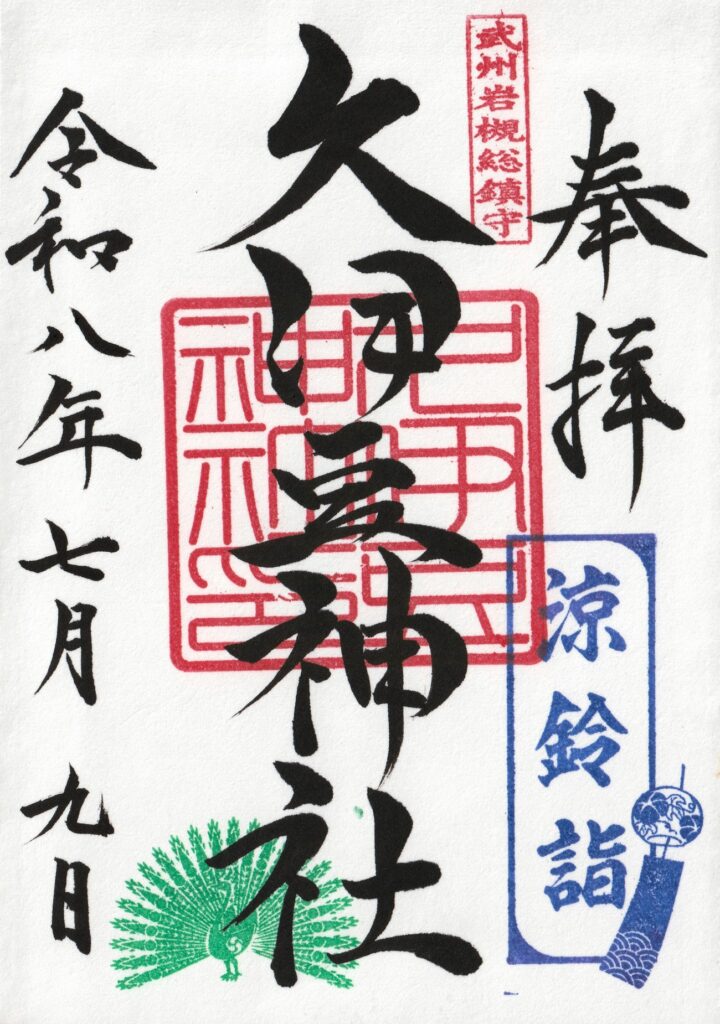 奉拝
武州岩槻総鎮守
涼鈴詣
久伊豆神社
令和八年七月九日